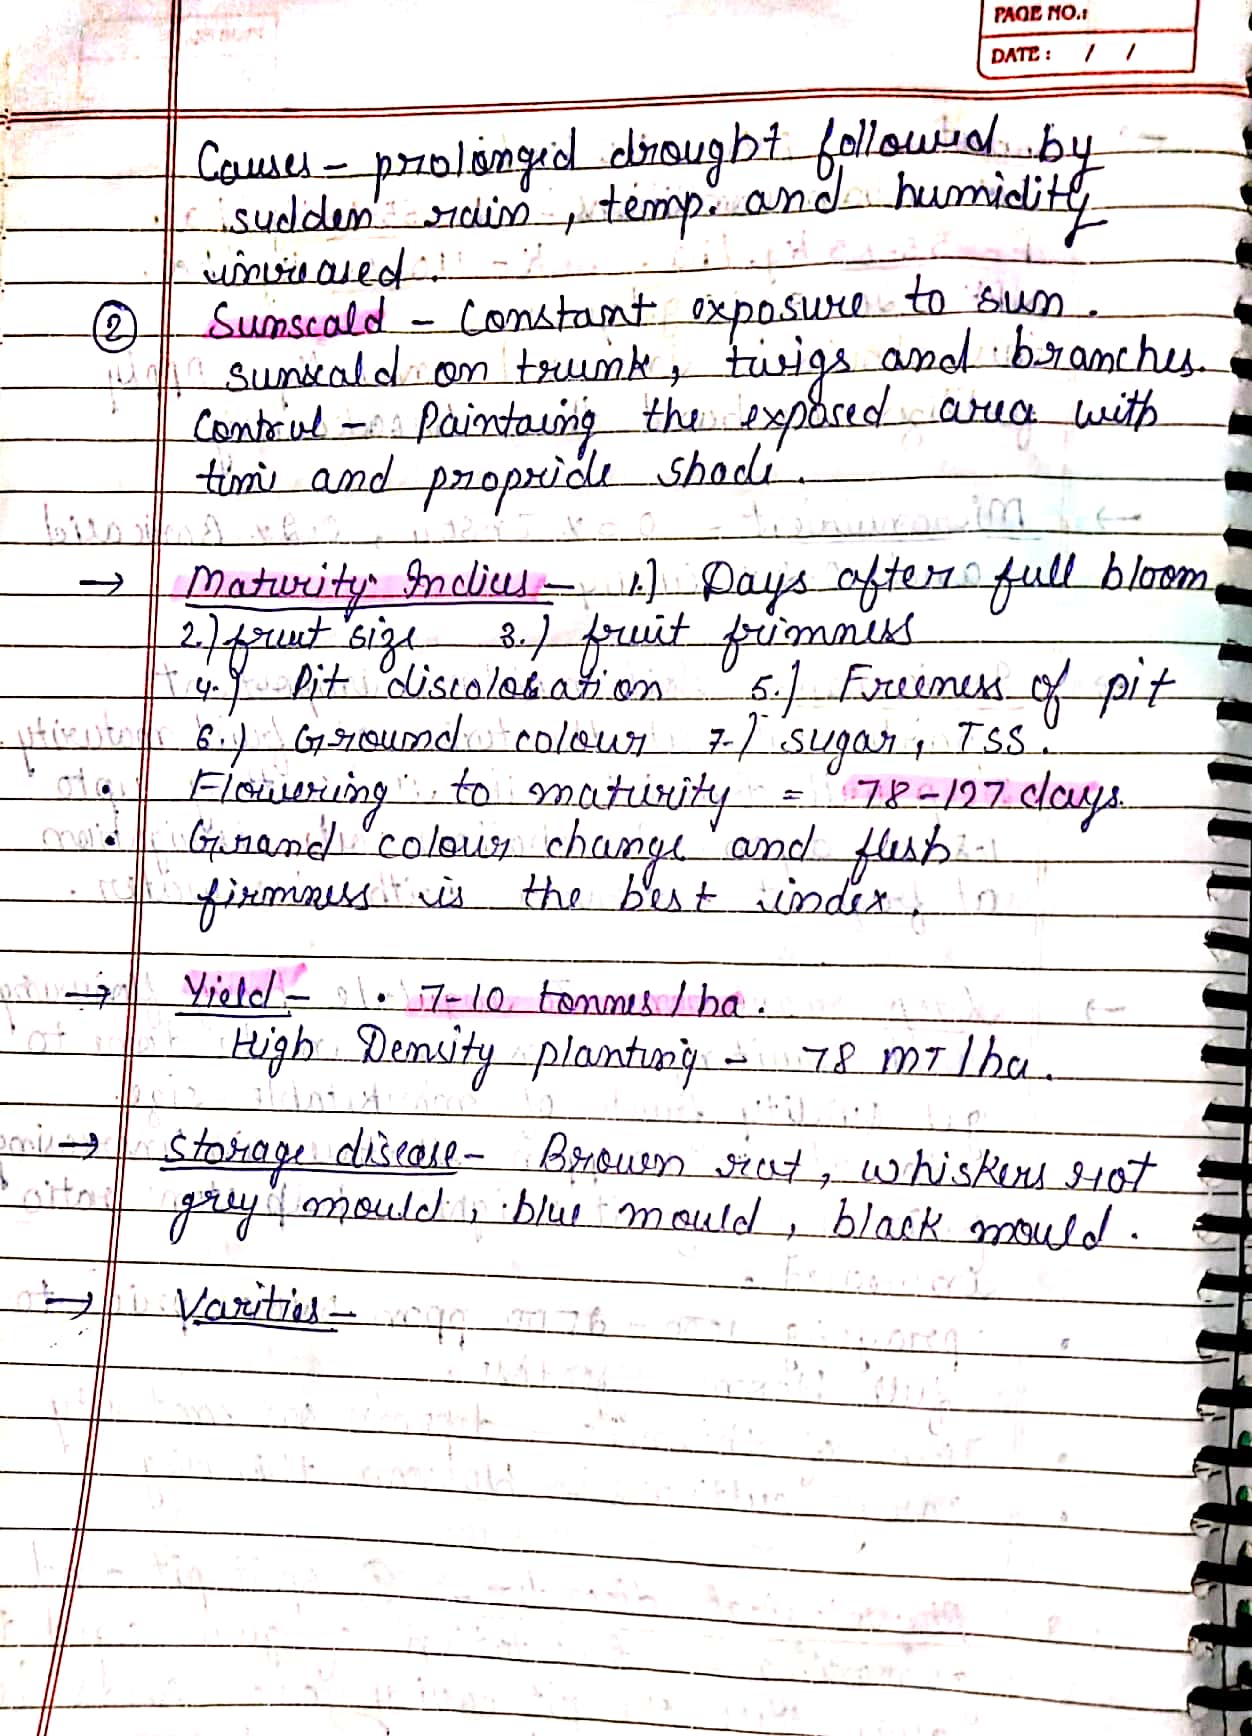 PAGE NO.:
DATE: / /
Causes - prolonged drought followed by
sudden rain, temp. and humidity
increased.
② Sunscald - Constant exposure to sun.
sunscald on trunk, twigs and branches.
Control - Paintaing the exposed area with
time and propride shade.
→ Maturity Indices - 1.) Days after full bloom
2.) fruit size 3.) fruit frimness
4.) Pit discoloration 5.) Freeness of pit
6.) Ground colour 7.) sugar, TSS.
• Flowering to maturity = 78-127 days.
• Grand colour change and flesh
firmness is the best index.
→ Yield - • 7-10 tonnes/ha.
High Density planting - 78 MT/ha.
→ Storage disease - Brown rot, whiskers rot
grey mould, blue mould, black mould.
→ Varities -